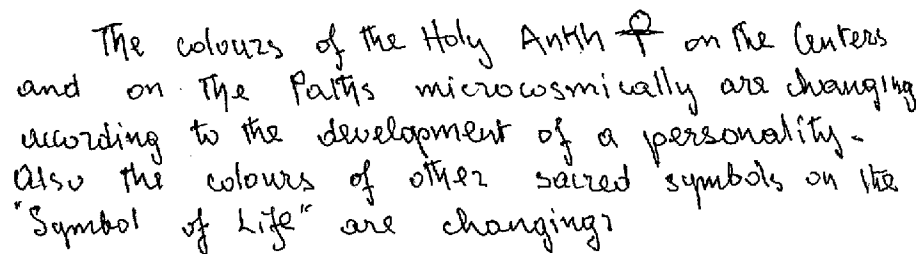 The colours of the Holy Ankh ☥ on the Centers
and on The Paths microcosmically are changing
according to the development of a personality.
Also the colours of other sacred symbols on the
"Symbol of Life" are changing.